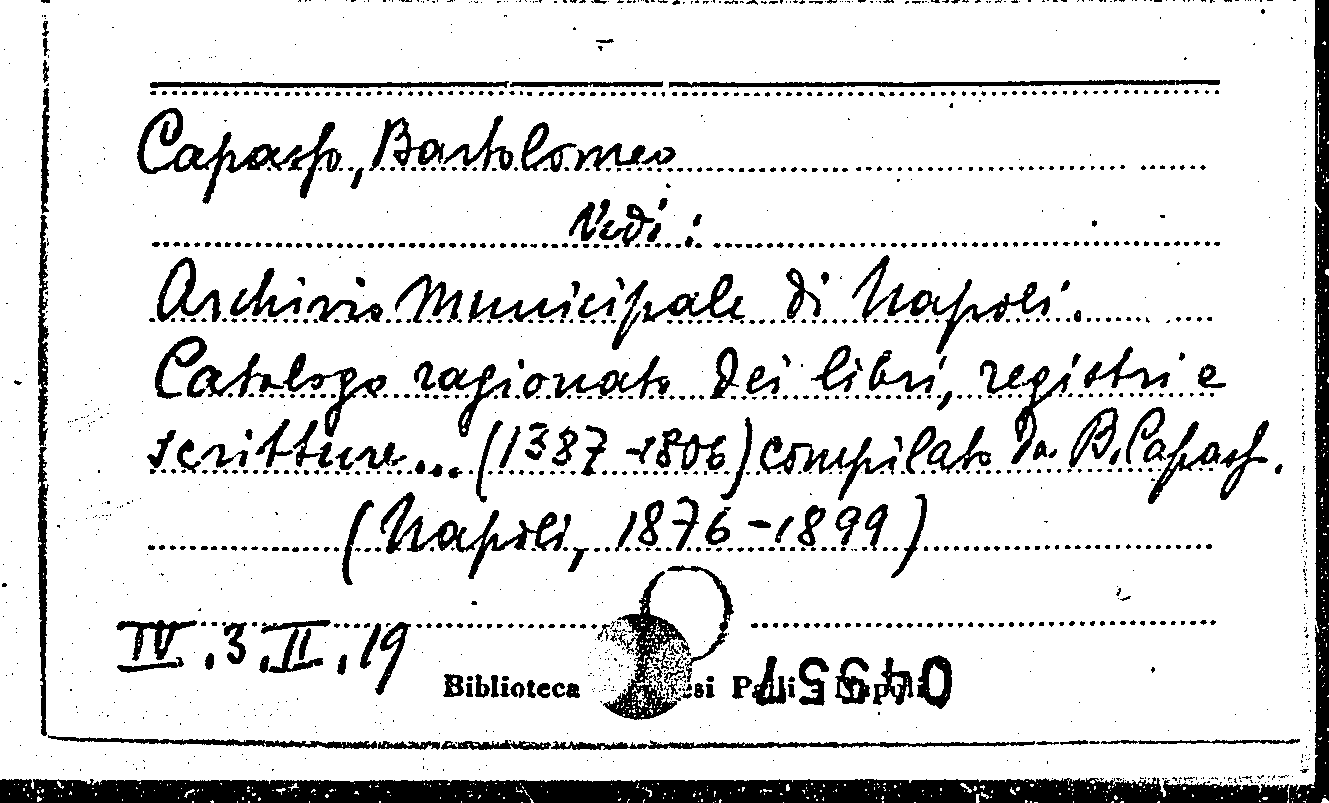 Capasso, Bartolomeo
Vedi:
Archivio Municipale di Napoli.
Catalogo ragionato dei libri, registri e
scritture... (1387-1806) compilato da B. Capasso.
(Napoli, 1876-1899)
IV.3.II.19
Biblioteca